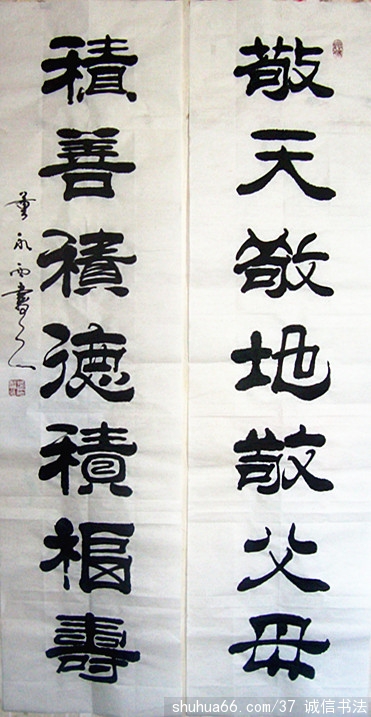 敬天敬地敬父母
積善積德積福壽
永雨書
shuhua66.com/37 诚信书法